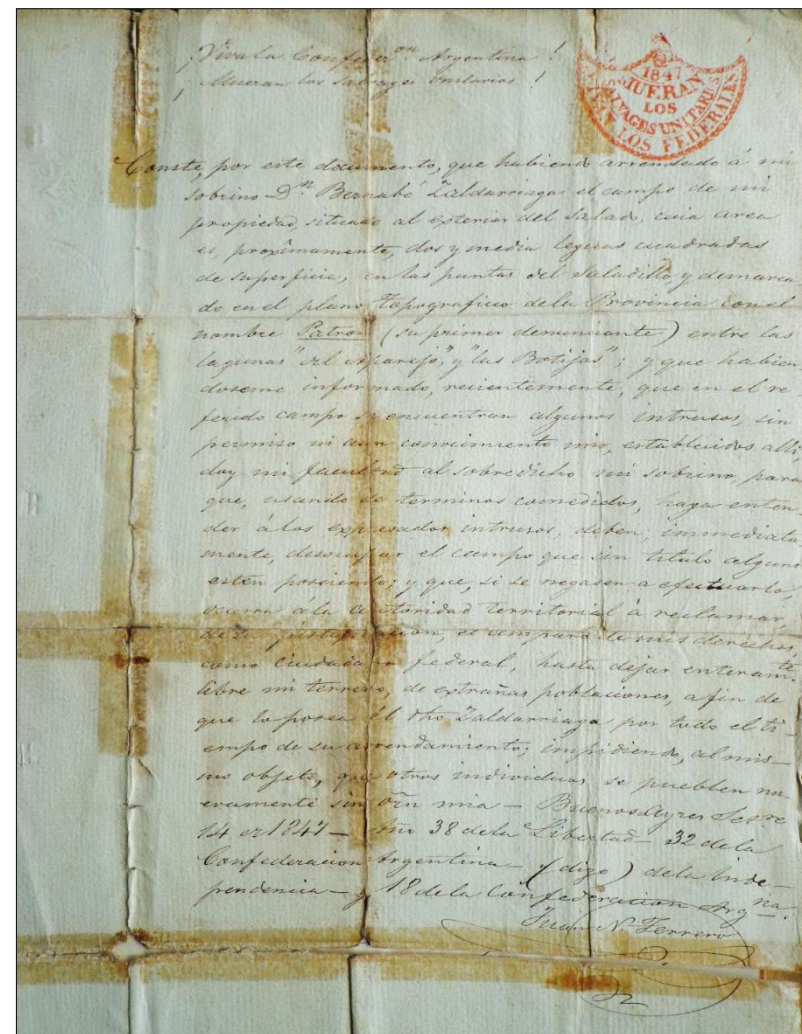 ¡Viva la Confeder.on Argentina!
¡Mueran los Salvages Unitarios!
1847
MUERAN
LOS
SALVAGES UNITARIOS
VIVAN LOS FEDERALES
Conste, por este documento, que habiend arrendado á mi
sobrino D.n Bernabé Zaldarriaga el campo de mi
propiedad, situado al esterior del Salado, cuia area
es, proximamente, dos y media leguas cuadradas
de superficie, en las puntas del Saladillo y demarca
do en el plano topografico de la Provincia con el
nombre Patron (su primer denunciante) entre las
lagunas "del Aparejo," y "las Botijas"; y que habien
doseme informado, recientemente, que en el re
ferido campo se encuentran algunos intrusos, sin
permiso ni aun conocimiento mio, establecidos alli,
doy mi facultad al sobredicho mi sobrino, para
que, usando de terminos comedidos, haga enten
der á los expresados intrusos, deben, immediata
mente, desocupar el campo que sin titulo alguno
estén poseiendo; y que, si se negasen a efectuarlo,
ocurra á la autoridad territorial á reclamar,
de su justificacion, el amparo de mis derechos,
como Ciudadano federal, hasta dejar enteram.te
libre mi terreno, de estrañas poblaciones, a fin de
que lo posea el dho Zaldarriaga por todo el ti-
empo de su arrendamiento; impidiendo, al mis-
mo objeto, que otros individuos se pueblen nu
evamente sin orn mia - Buenos Ayres
14 de 1847 - Año 38 de la Libertad - 32 de la
Confederacion Argentina - (digo) de la Inde-
pendencia - y 18 de la Confederacion Arg.na.
Juan N. Terrero